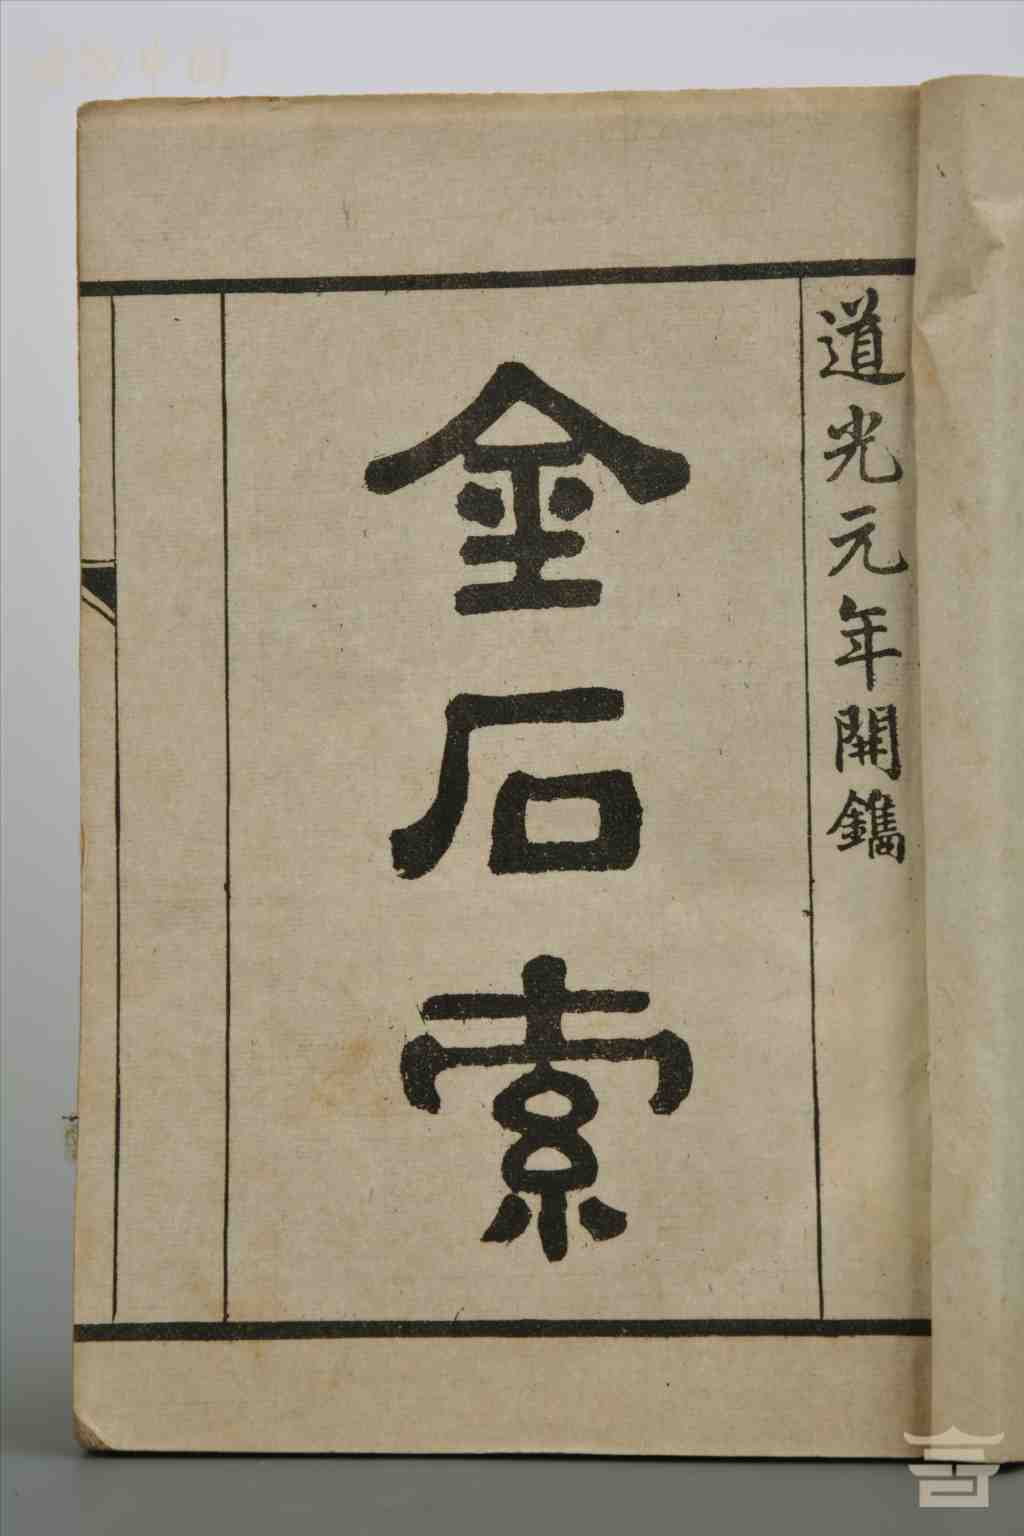 道光元年開鐫
金石索